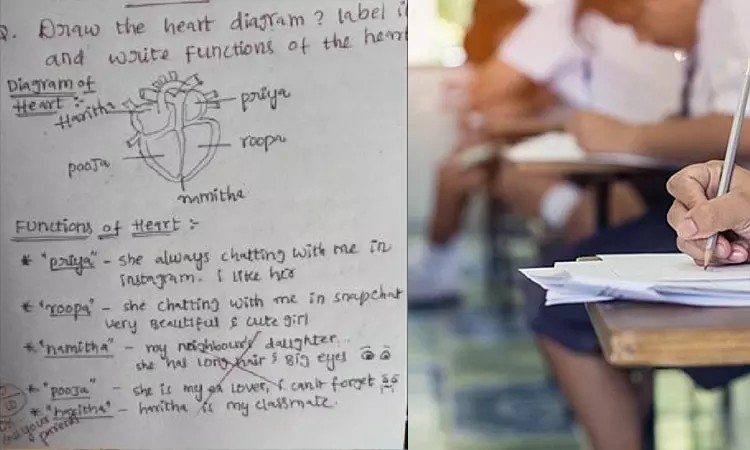 Q. Draw the heart diagram? label i
and write functions of the heart
Diagram of
Heart :-
Haritha
priya
roopa
pooja
namitha
Functions of Heart :-
* "priya" - she always chatting with me in
instagram. i like her
* "roopa" - she chatting with me in snapchat
very Beautiful & cute girl
* "namitha" - my neighbour's daughter.
she has long hair & Big eyes
* "pooja" - she is my ex lover, i can't forget
* "haritha" - haritha is my classmate.
10
your
parents